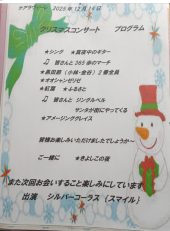 ケアタウン
2025年12月16日
クリスマスコンサート プログラム
★シング ★真夜中のギター
♫ 皆さんと 365歩のマーチ
★黒田節(小林・金谷)2番全員
★オオシャンゼリゼ
★紅葉 ★ふるさと
♫ 皆さんと ジングルベル
サンタが街にやってくる
★アメージンググレイス
皆様お楽しみいただけましたでしょうか～
ご一緒に ★きよしこの夜
また次回お会いすること楽しみにしています
出演 シルバーコーラス(スマイル)